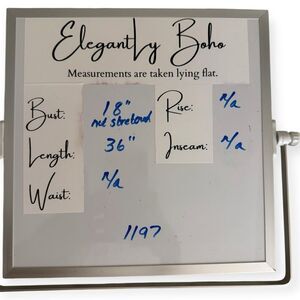 Elegantly Boho
Measurements are taken lying flat.
Bust: 18"
not stretched
Length: 36"
Waist: n/a
Rise: n/a
Inseam: n/a
1197